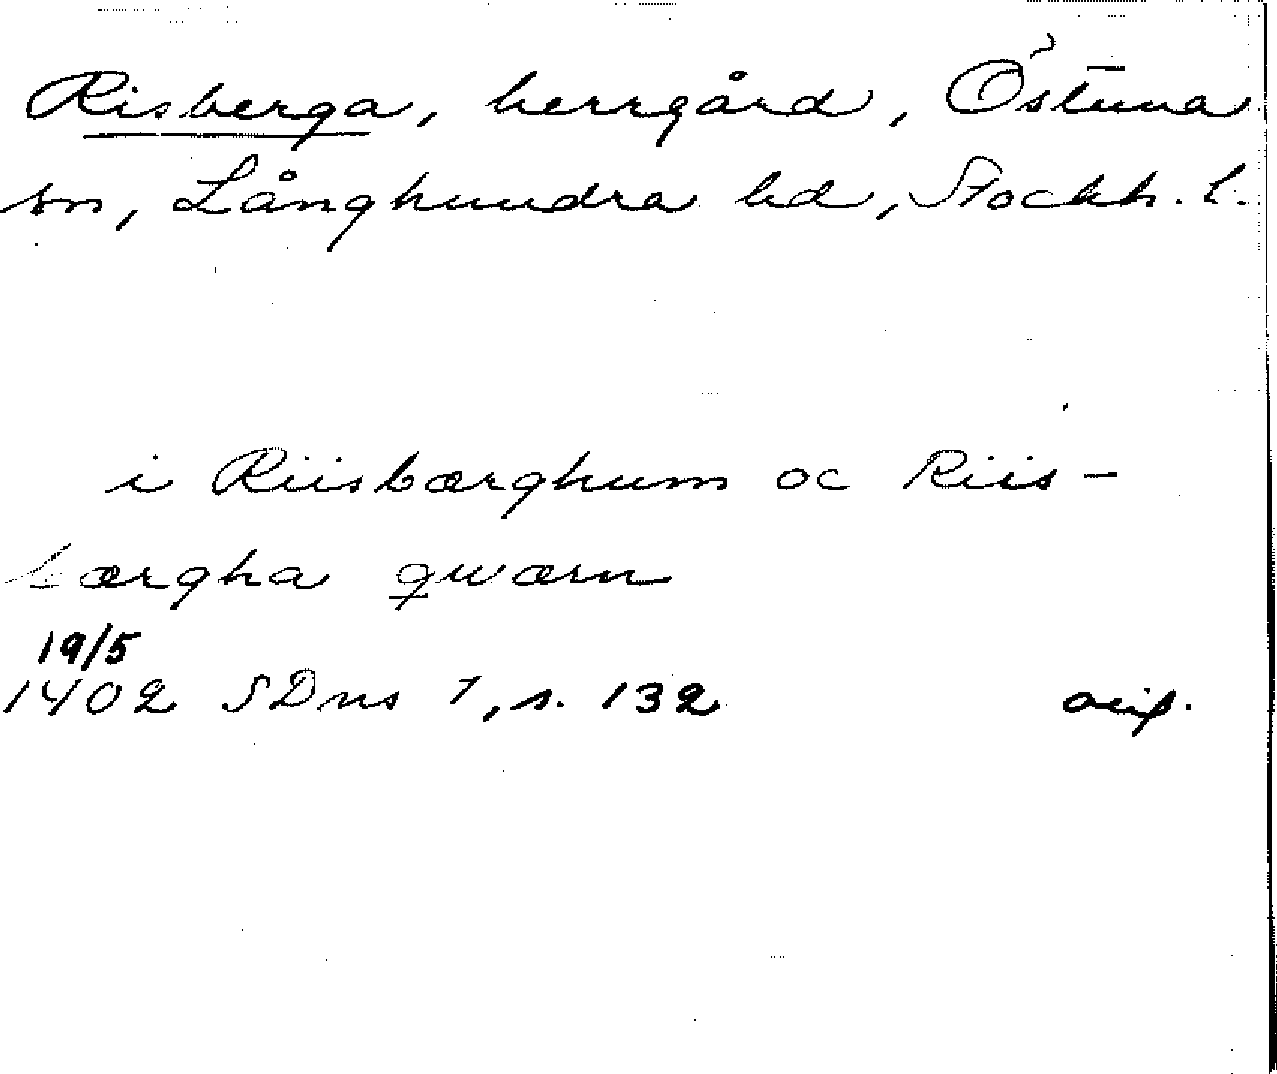 Risberga, herrgård, Östuna
sn, Långhundra hd, Stockh. l.
i Riisbærghum oc Riis-
bærgha qwærn
19/5
1402 SDns 1, s. 132 avsk.